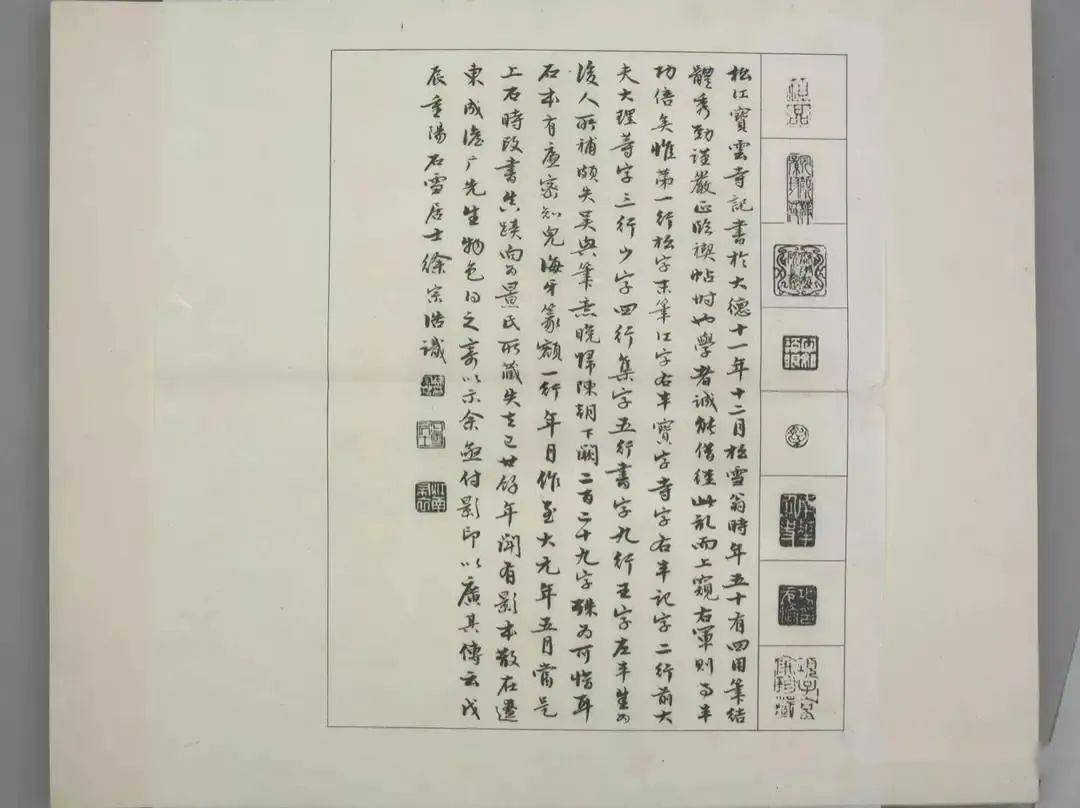 松江寶雲寺記書於大德十一年十二月松雪翁時年五十有四用筆結
體秀勁謹嚴正臨禊帖時也學者誠能借徑此記而上窺右軍則事半
功倍矣惟第一行松字末筆江字右半寶字寺字右半記字二行前大
夫大理等字三行少字四行集字五行書字九行王字左半皆為
後人所補頗失吳興筆意晚歸陳朝下闕二百二十九字殊為可惜耳
石本有廉密知兒海牙篆額一行年月作至大元年五月當是
上石時改書真蹟向為景氏所藏失去已廿餘年聞有影本散在遼
東成澹广先生物色得之寄以示余亟付影印以廣其傳云戊
辰重陽石雪居士徐宗浩識